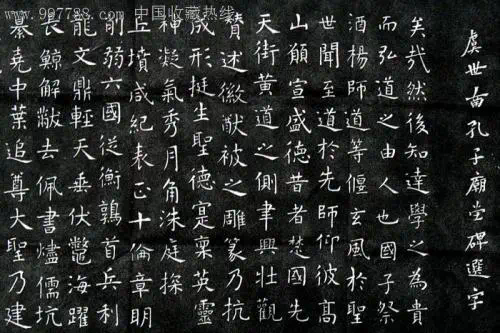 www.997788.com 中国收藏热线
虞世南孔子廟堂碑選字
矣哉然後知達學之為貴
而弘道之由人也國子祭
酒楊師道等偃玄風於聖
世聞至道於先師仰彼高
山願宣盛德昔者楚國先
天街黃道之側聿興壯觀
贊述徽猷被之雕篆乃抗
成形挺生聖德寔稟英靈
神凝氣秀月角珠庭探
丘墳咸紀表正十倫章明
削弱六國從衡鶉首兵利
龍文鼎輕天垂伏鱉海躍
長鯨解黻去佩書燼儒坑
纂堯中葉追尊大聖乃建